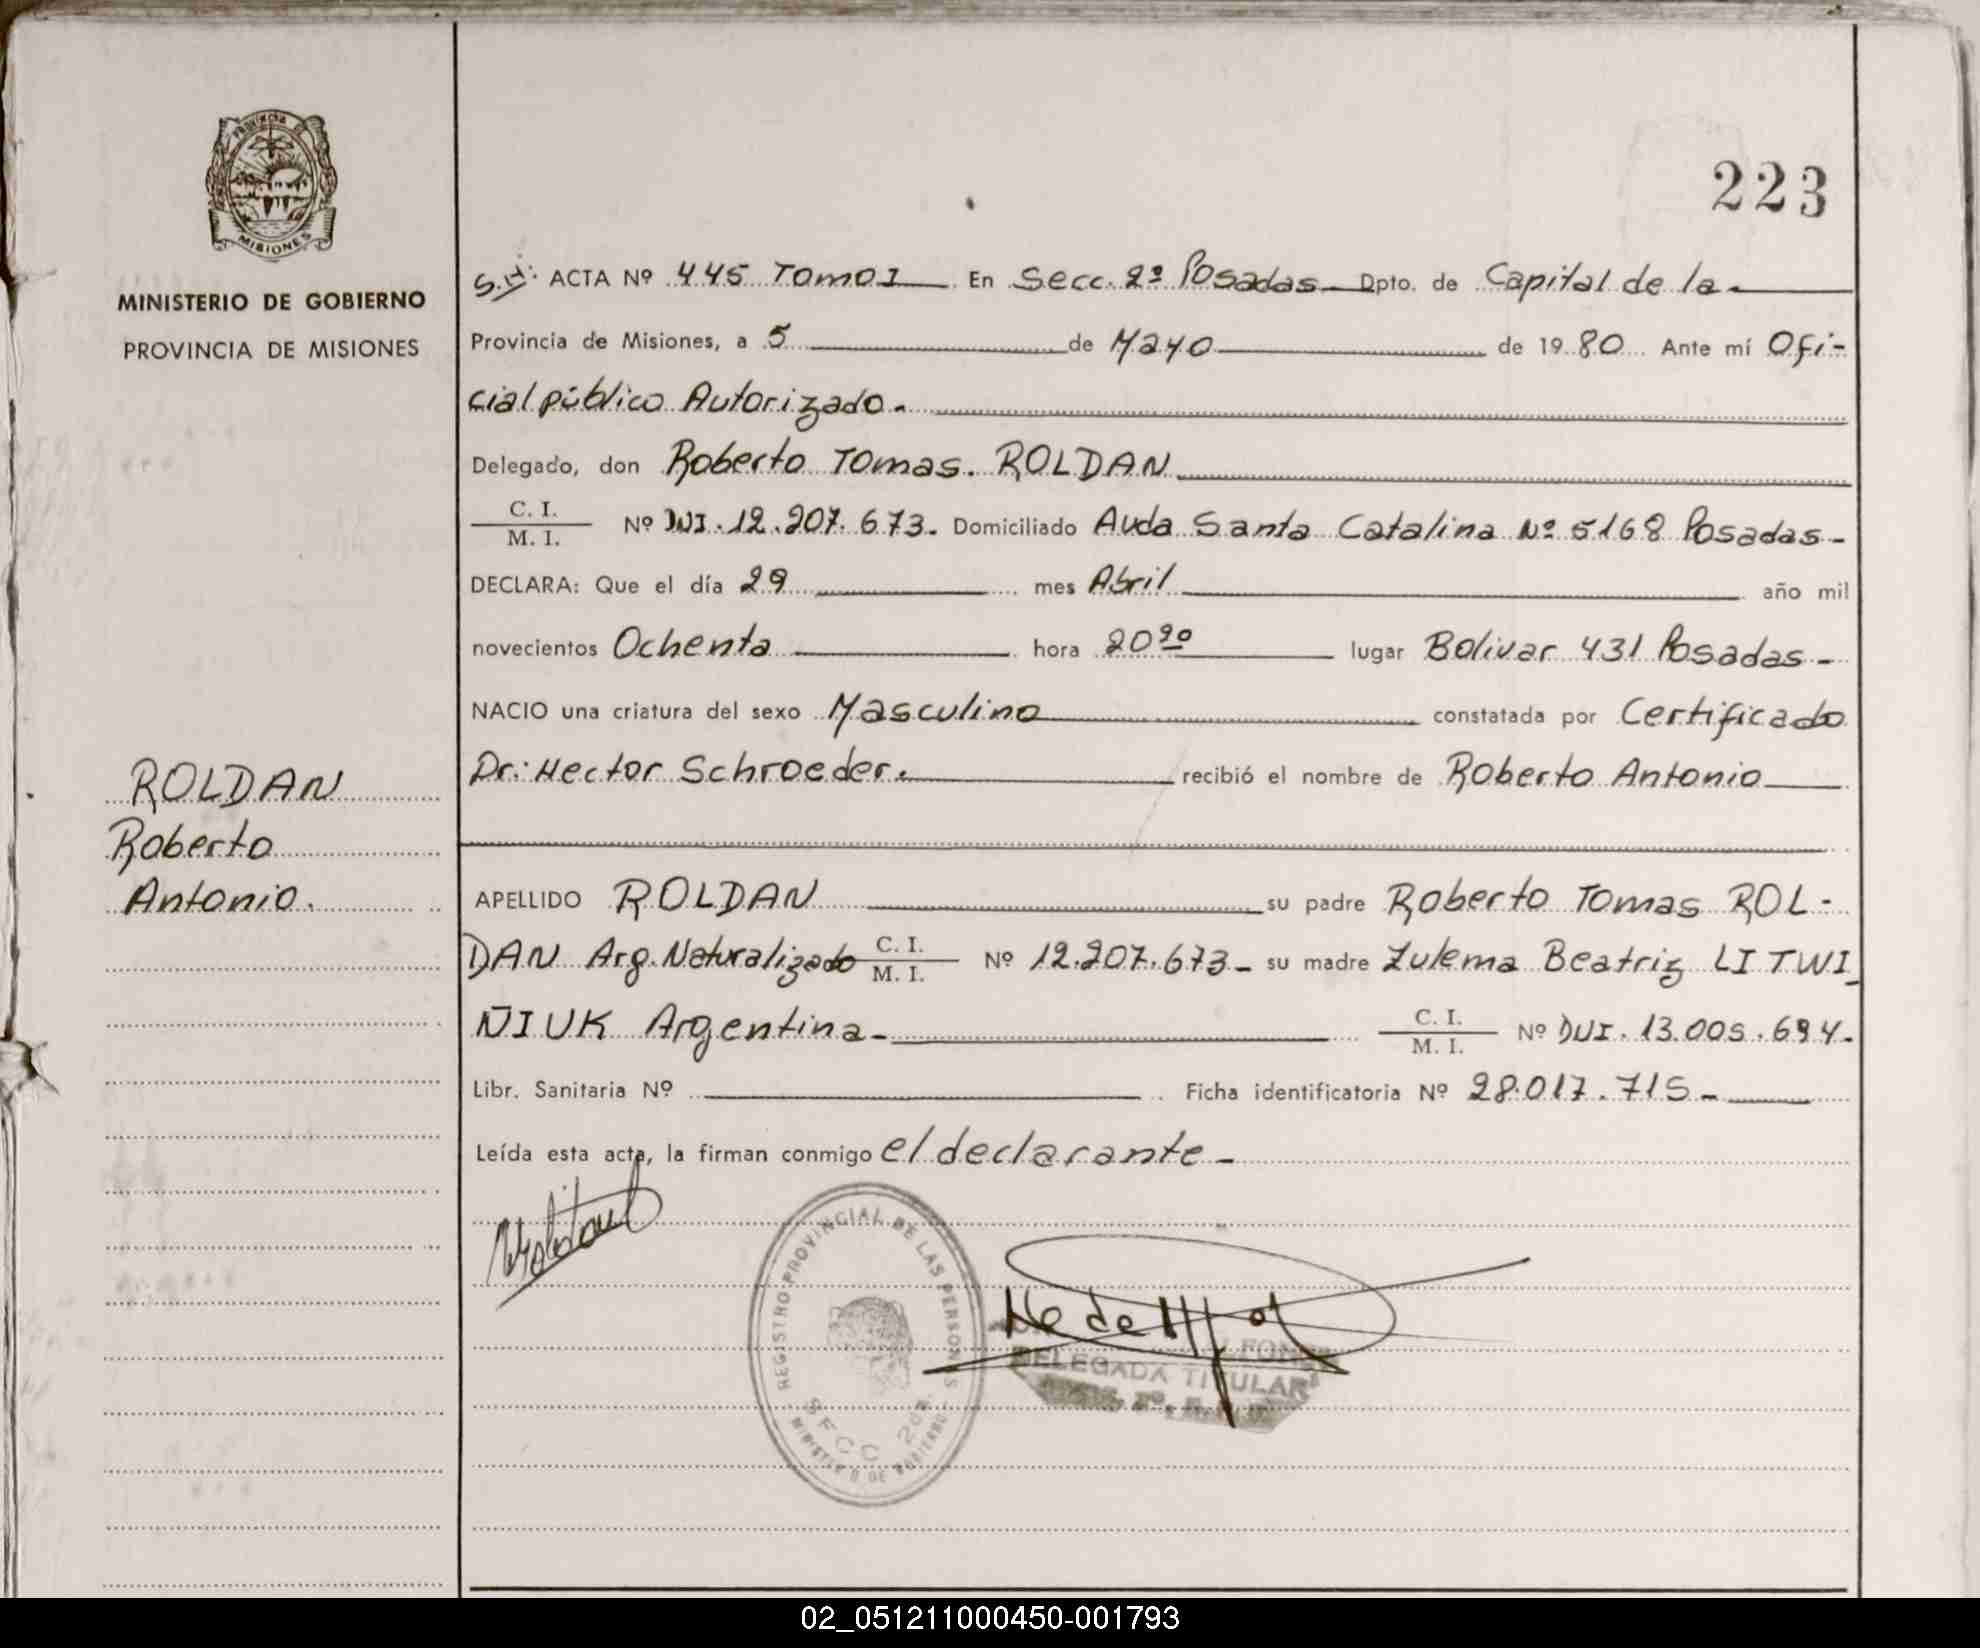 PROVINCIA DE
MISIONES
MINISTERIO DE GOBIERNO
PROVINCIA DE MISIONES
ROLDAN
Roberto
Antonio.
223
S.H: ACTA Nº 445 Tomo I En Secc. 2ª Posadas Dpto. de Capital de la
Provincia de Misiones, a 5 de Mayo de 19 80 Ante mí Ofi-
cial público Autorizado.
Delegado, don Roberto Tomas ROLDAN
C. I.
M. I.
Nº DNI. 12.207.673. Domiciliado Avda Santa Catalina Nº 5168 Posadas-
DECLARA: Que el día 29 mes Abril año mil
novecientos Ochenta hora 20 20 lugar Bolivar 431 Posadas-
NACIO una criatura del sexo Masculino constatada por Certificado
Dr: Hector Schroeder. recibió el nombre de Roberto Antonio
APELLIDO ROLDAN su padre Roberto Tomas ROL-
DAN Arg. Naturalizado C. I. M. I. Nº 12.207.673- su madre Zulema Beatriz LITWI
ÑIUK Argentina- C. I. M. I. Nº DNI. 13.005.694-
Libr. Sanitaria Nº Ficha identificatoria Nº 28.017.715-
Leída esta acta, la firman conmigo el declarante-
REGISTRO PROVINCIAL DE LAS PERSONAS
SECC 2da.
MINISTERIO DE GOBIERNO
DELEGADA TITULAR
02_051211000450-001793